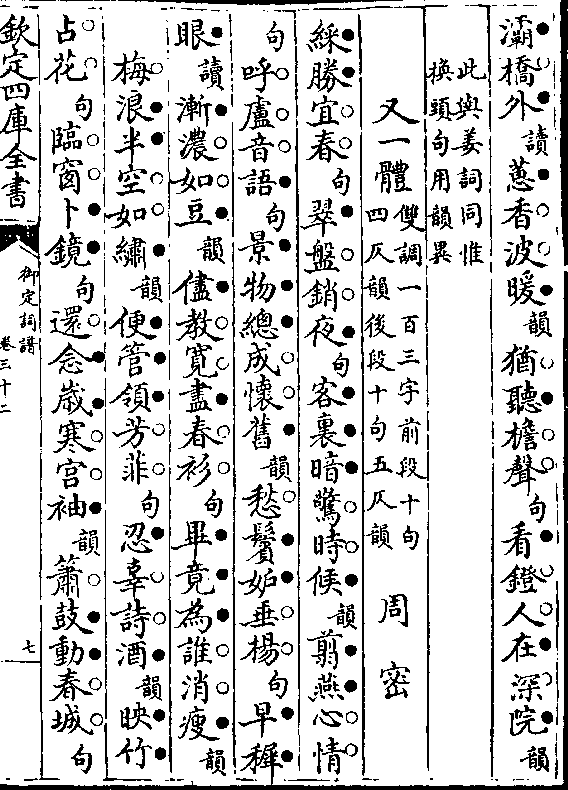 灞橋外讀蔥香波暖韻猶聽檐聲句看鐙人在深院韻
此與姜詞同惟
換頭句用韻異
又一體雙調一百三字前段十句
四仄韻後段十句五仄韻 周密
綵勝宜春句翠盤銷夜句客裏暗驚時候韻翦燕心情
句呼盧音語句景物總成懷舊韻愁鬢妒垂楊句早穉
眼讀漸濃如豆韻儘教寬盡春衫句畢竟為誰消瘦韻
梅浪半空如繡韻便管領芳菲句忍辜詩酒韻映竹
占花句臨窗卜鏡句還念歲寒宮袖韻簫鼓動春城句
欽定四庫全書
御定詞譜
卷三十二
七